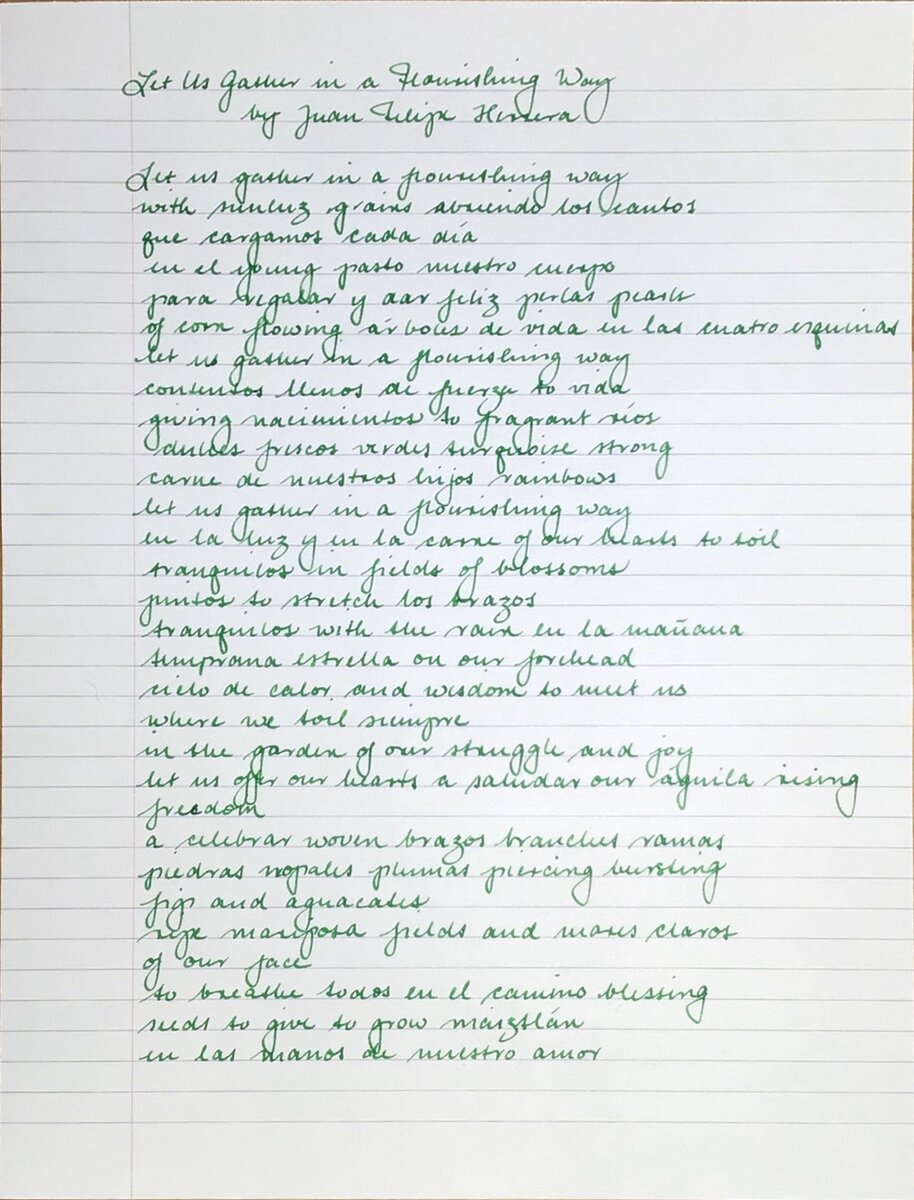 Let Us Gather in a Flourishing Way
by Juan Felipe Herrera
Let us gather in a flourishing way
with sunluz grains abriendo los cantos
que cargamos cada día
en el young pasto nuestro cuerpo
para regalar y dar feliz perlas pearls
of corn flowing árboles de vida en las cuatro esquinas
let us gather in a flourishing way
contentos llenos de fuerza to vida
giving nacimientos to fragrant ríos
dulces frescos verdes turquoise strong
carne de nuestros hijos rainbows
let us gather in a flourishing way
en la luz y en la carne of our hearts to toil
tranquilos in fields of blossoms
juntos to stretch los brazos
tranquilos with the rain en la mañana
temprana estrella on our forehead
cielo de calor and wisdom to meet us
where we toil siempre
in the garden of our struggle and joy
let us offer our hearts a saludar our águila rising
freedom
a celebrar woven brazos branches ramas
piedras nopales plumas piercing bursting
figs and aguacates
ripe mariposa fields and mares claros
of our face
to breathe todos en el camino blessing
seeds to give to grow maiztlán
en las manos de nuestro amor